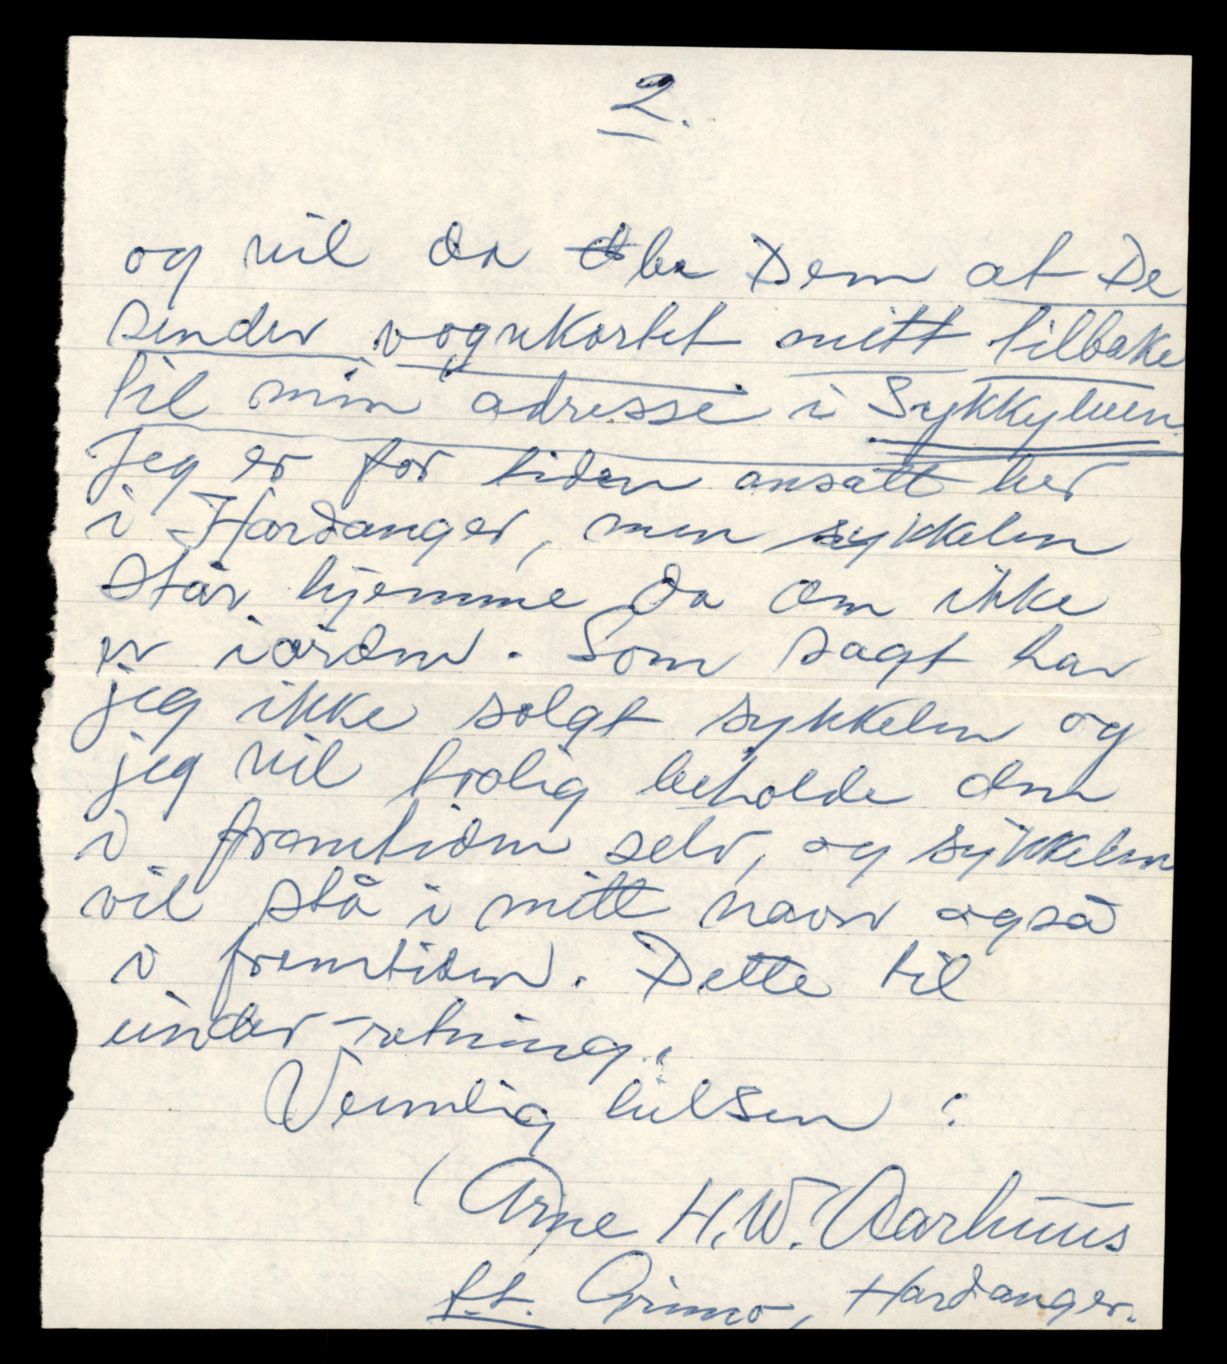 2.
og vil da be Dem at De
sender vognkortet mitt tilbake
til min adresse i Sykkylven.
Jeg er for tiden ansatt her
i Hardanger, men sykkelen
står hjemme da den ikke
er iorden. Som sagt har
jeg ikke solgt sykkelen og
jeg vil trolig beholde den
i framtiden selv, og sykkelen
vil stå i mitt navn også
i fremtiden. Dette til
under-retning.
Vennlig hilsen :
Arne H.W. Aarhuus
p.t. Grimo, Hardanger.